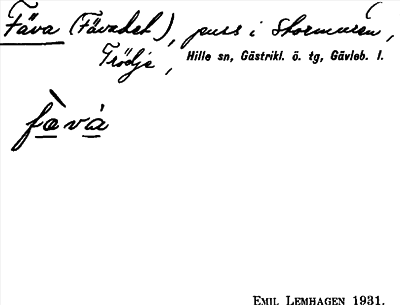 Fäva (Fävadet), puss i Stormuren,
Trödje, Hille sn, Gästrikl. ö. tg, Gävleb. l.
fævà
EMIL LEMHAGEN 1931.